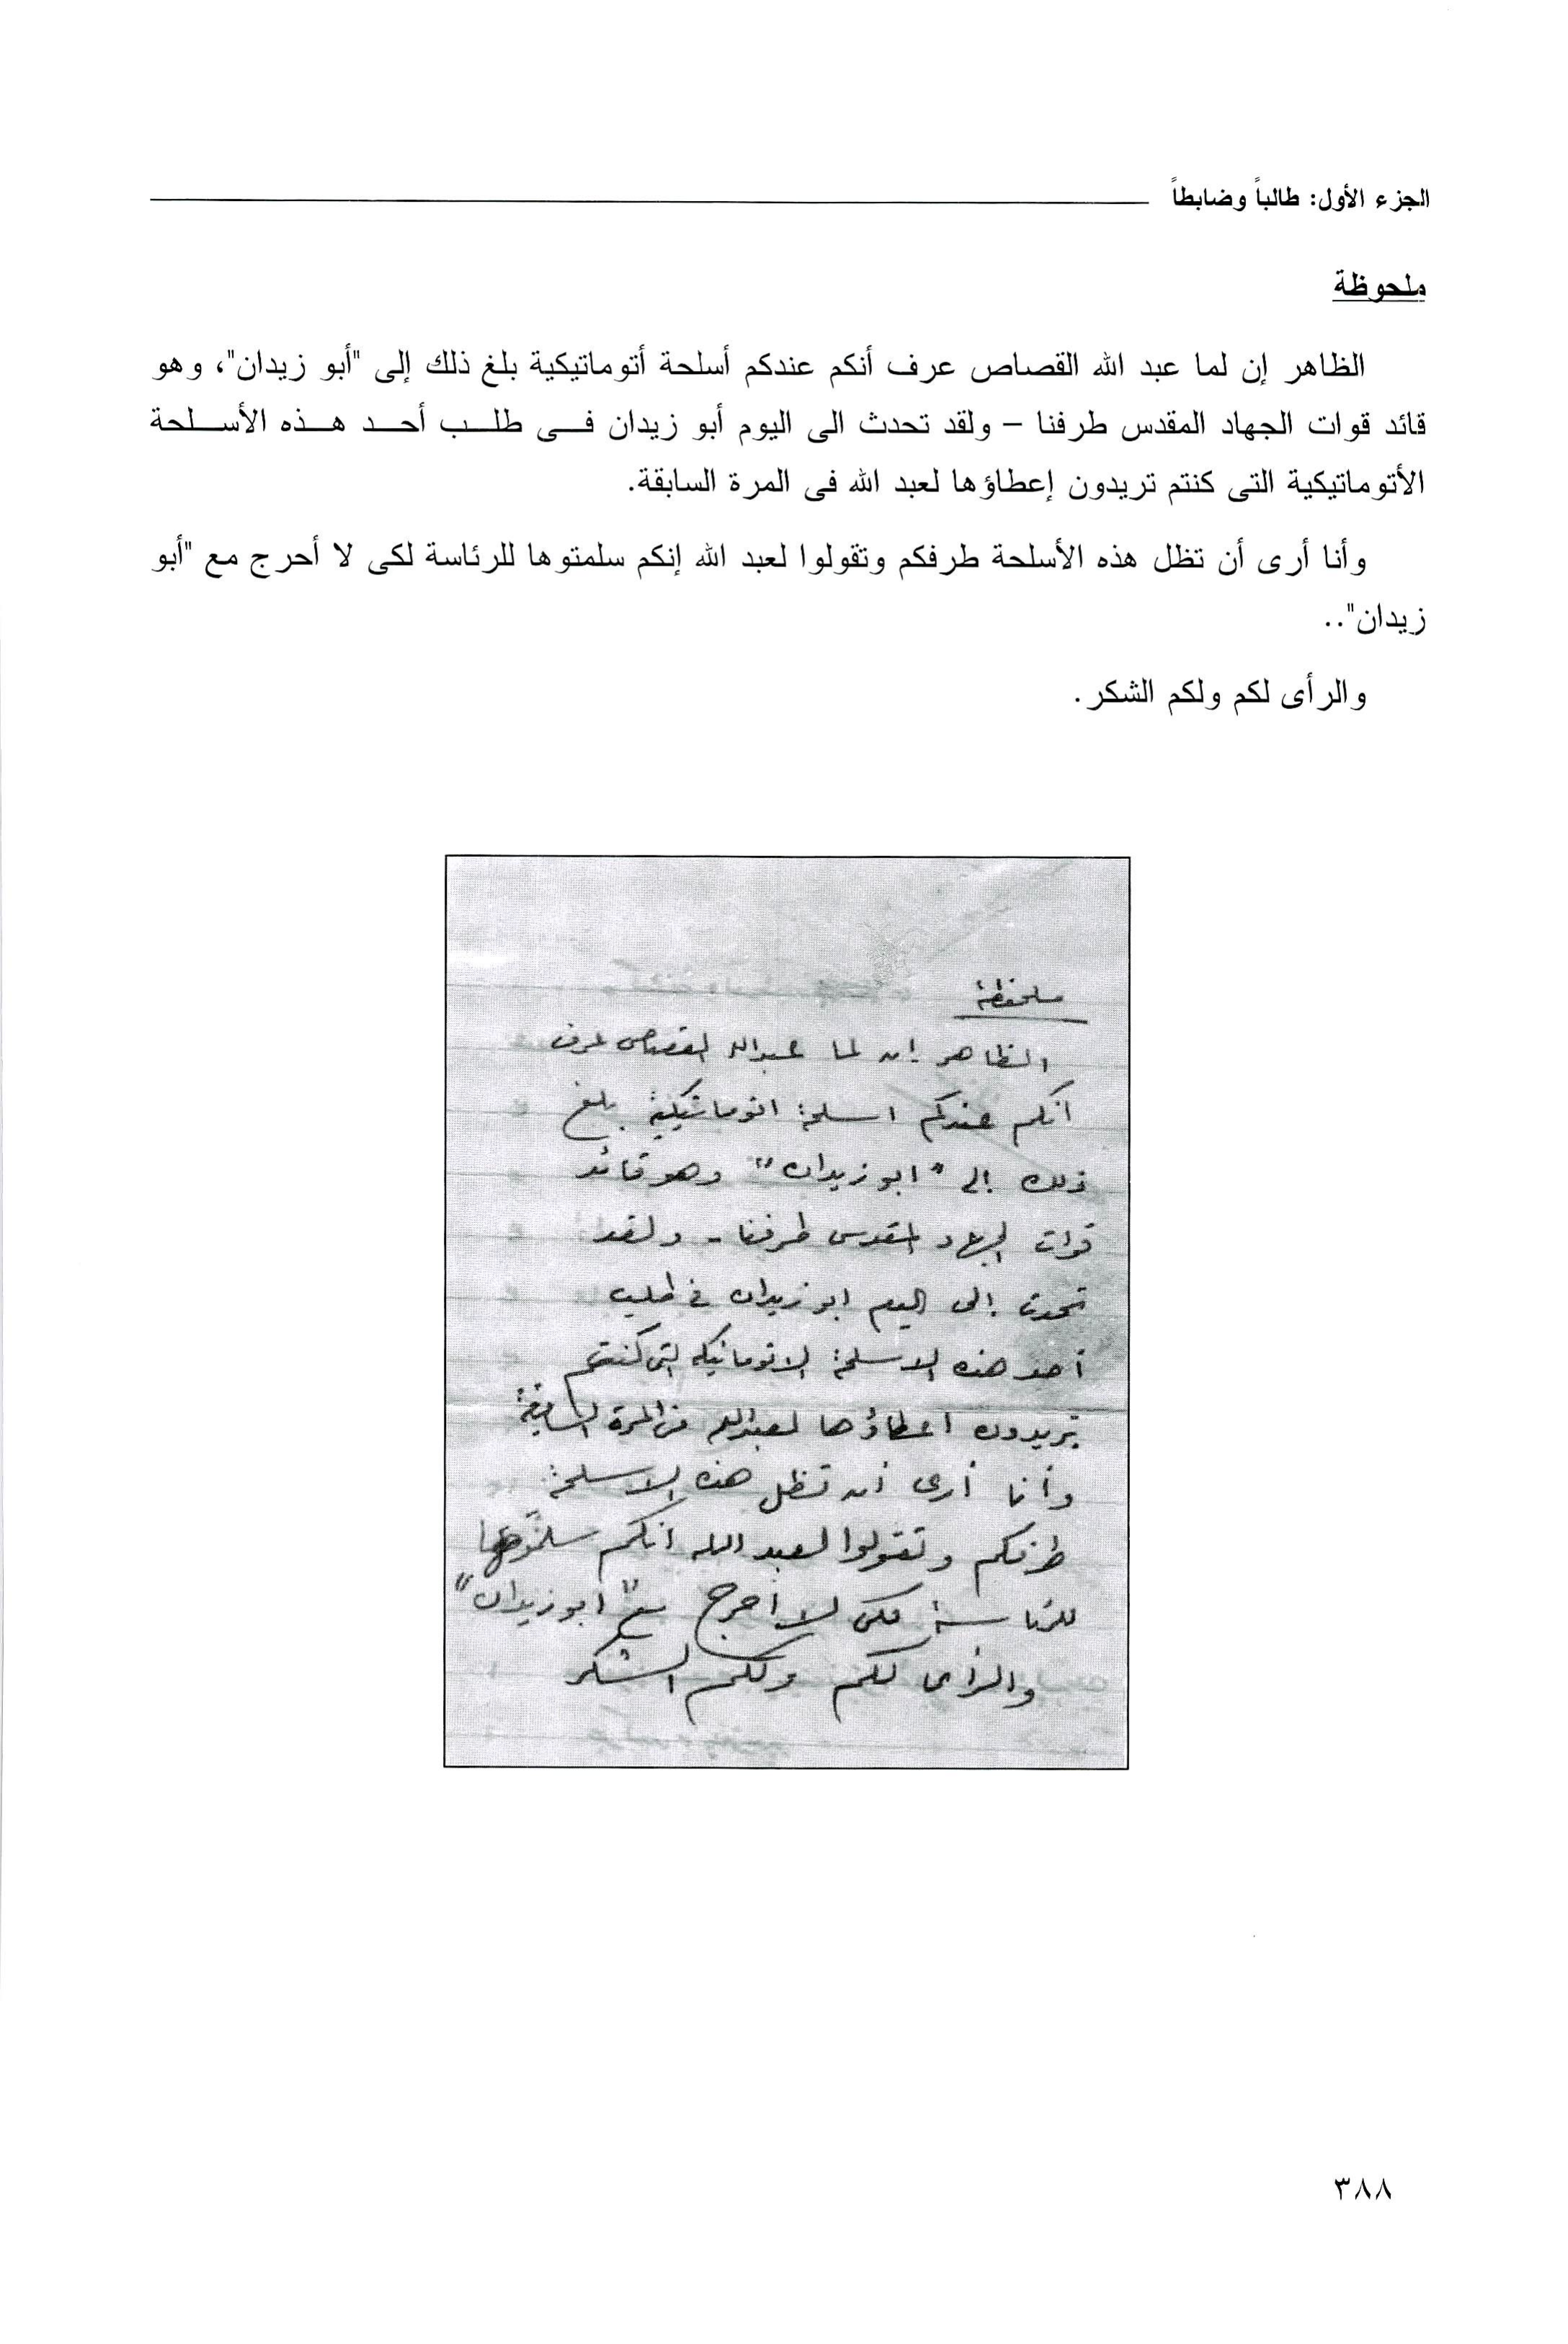 الجزء الأول: طالباً وضابطاً
ملحوظة
الظاهر إن لما عبد الله القصاص عرف أنكم عندكم أسلحة أتوماتيكية بلغ ذلك إلى "أبو زيدان"، وهو
قائد قوات الجهاد المقدس طرفنا – ولقد تحدث الى اليوم أبو زيدان فى طلب أحد هذه الأسلحة
الأتوماتيكية التى كنتم تريدون إعطاؤها لعبد الله فى المرة السابقة.
وأنا أرى أن تظل هذه الأسلحة طرفكم وتقولوا لعبد الله إنكم سلمتوها للرئاسة لكى لا أحرج مع "أبو
زيدان"..
والرأى لكم ولكم الشكر.
ملحوظة
الظاهر إن لما عبد الله القصاص عرف
انكم عندكم اسلحة اتوماتيكية بلغ
ذلك إلى "ابو زيدان" وهو قائد
قوات الجهاد المقدس طرفنا - ولقد
تحدث إلى اليوم ابو زيدان فى طلب
أحد هذه الاسلحة الاتوماتيكية التى كنتم
تريدون اعطاؤها لعبد الله فى المرة السابقة
وأنا أرى أن تظل هذه الاسلحة
طرفكم وتقولوا لعبد الله انكم سلمتوها
للرئاسة لكى لا أحرج مع "ابو زيدان"
والرأى لكم ولكم الشكر
٣٨٨